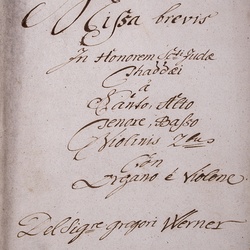 Missa brevis
In Honorem Scti Judæ
Thaddæi
à
Canto, Alto
Tenore, Basso
Violinis 2bus
Con
Organo è Violone.
Del Sigre Gregori Werner